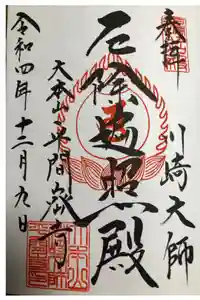 奉拝
川崎大師
厄除遍照殿
大本山平間寺
令和四年十二月九日